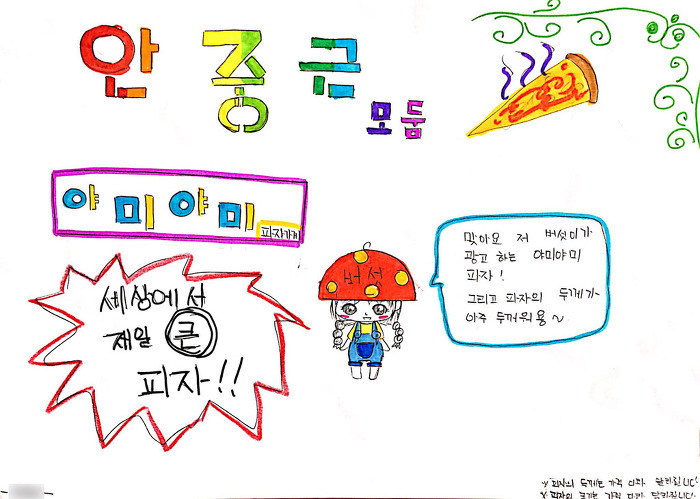 안중근
모둠
야미야미
피자가게
세상에서
제일 큰
피자!!
버섯
맞아요 저 버섯이가
광고 하는 야미야미
피자!
그리고 피자의 두께가
아주 두꺼워용~
※ 피자의 두께는 가격 마다 달라집니다!
※ 피자의 크기는 가격 마다 달라집니다!